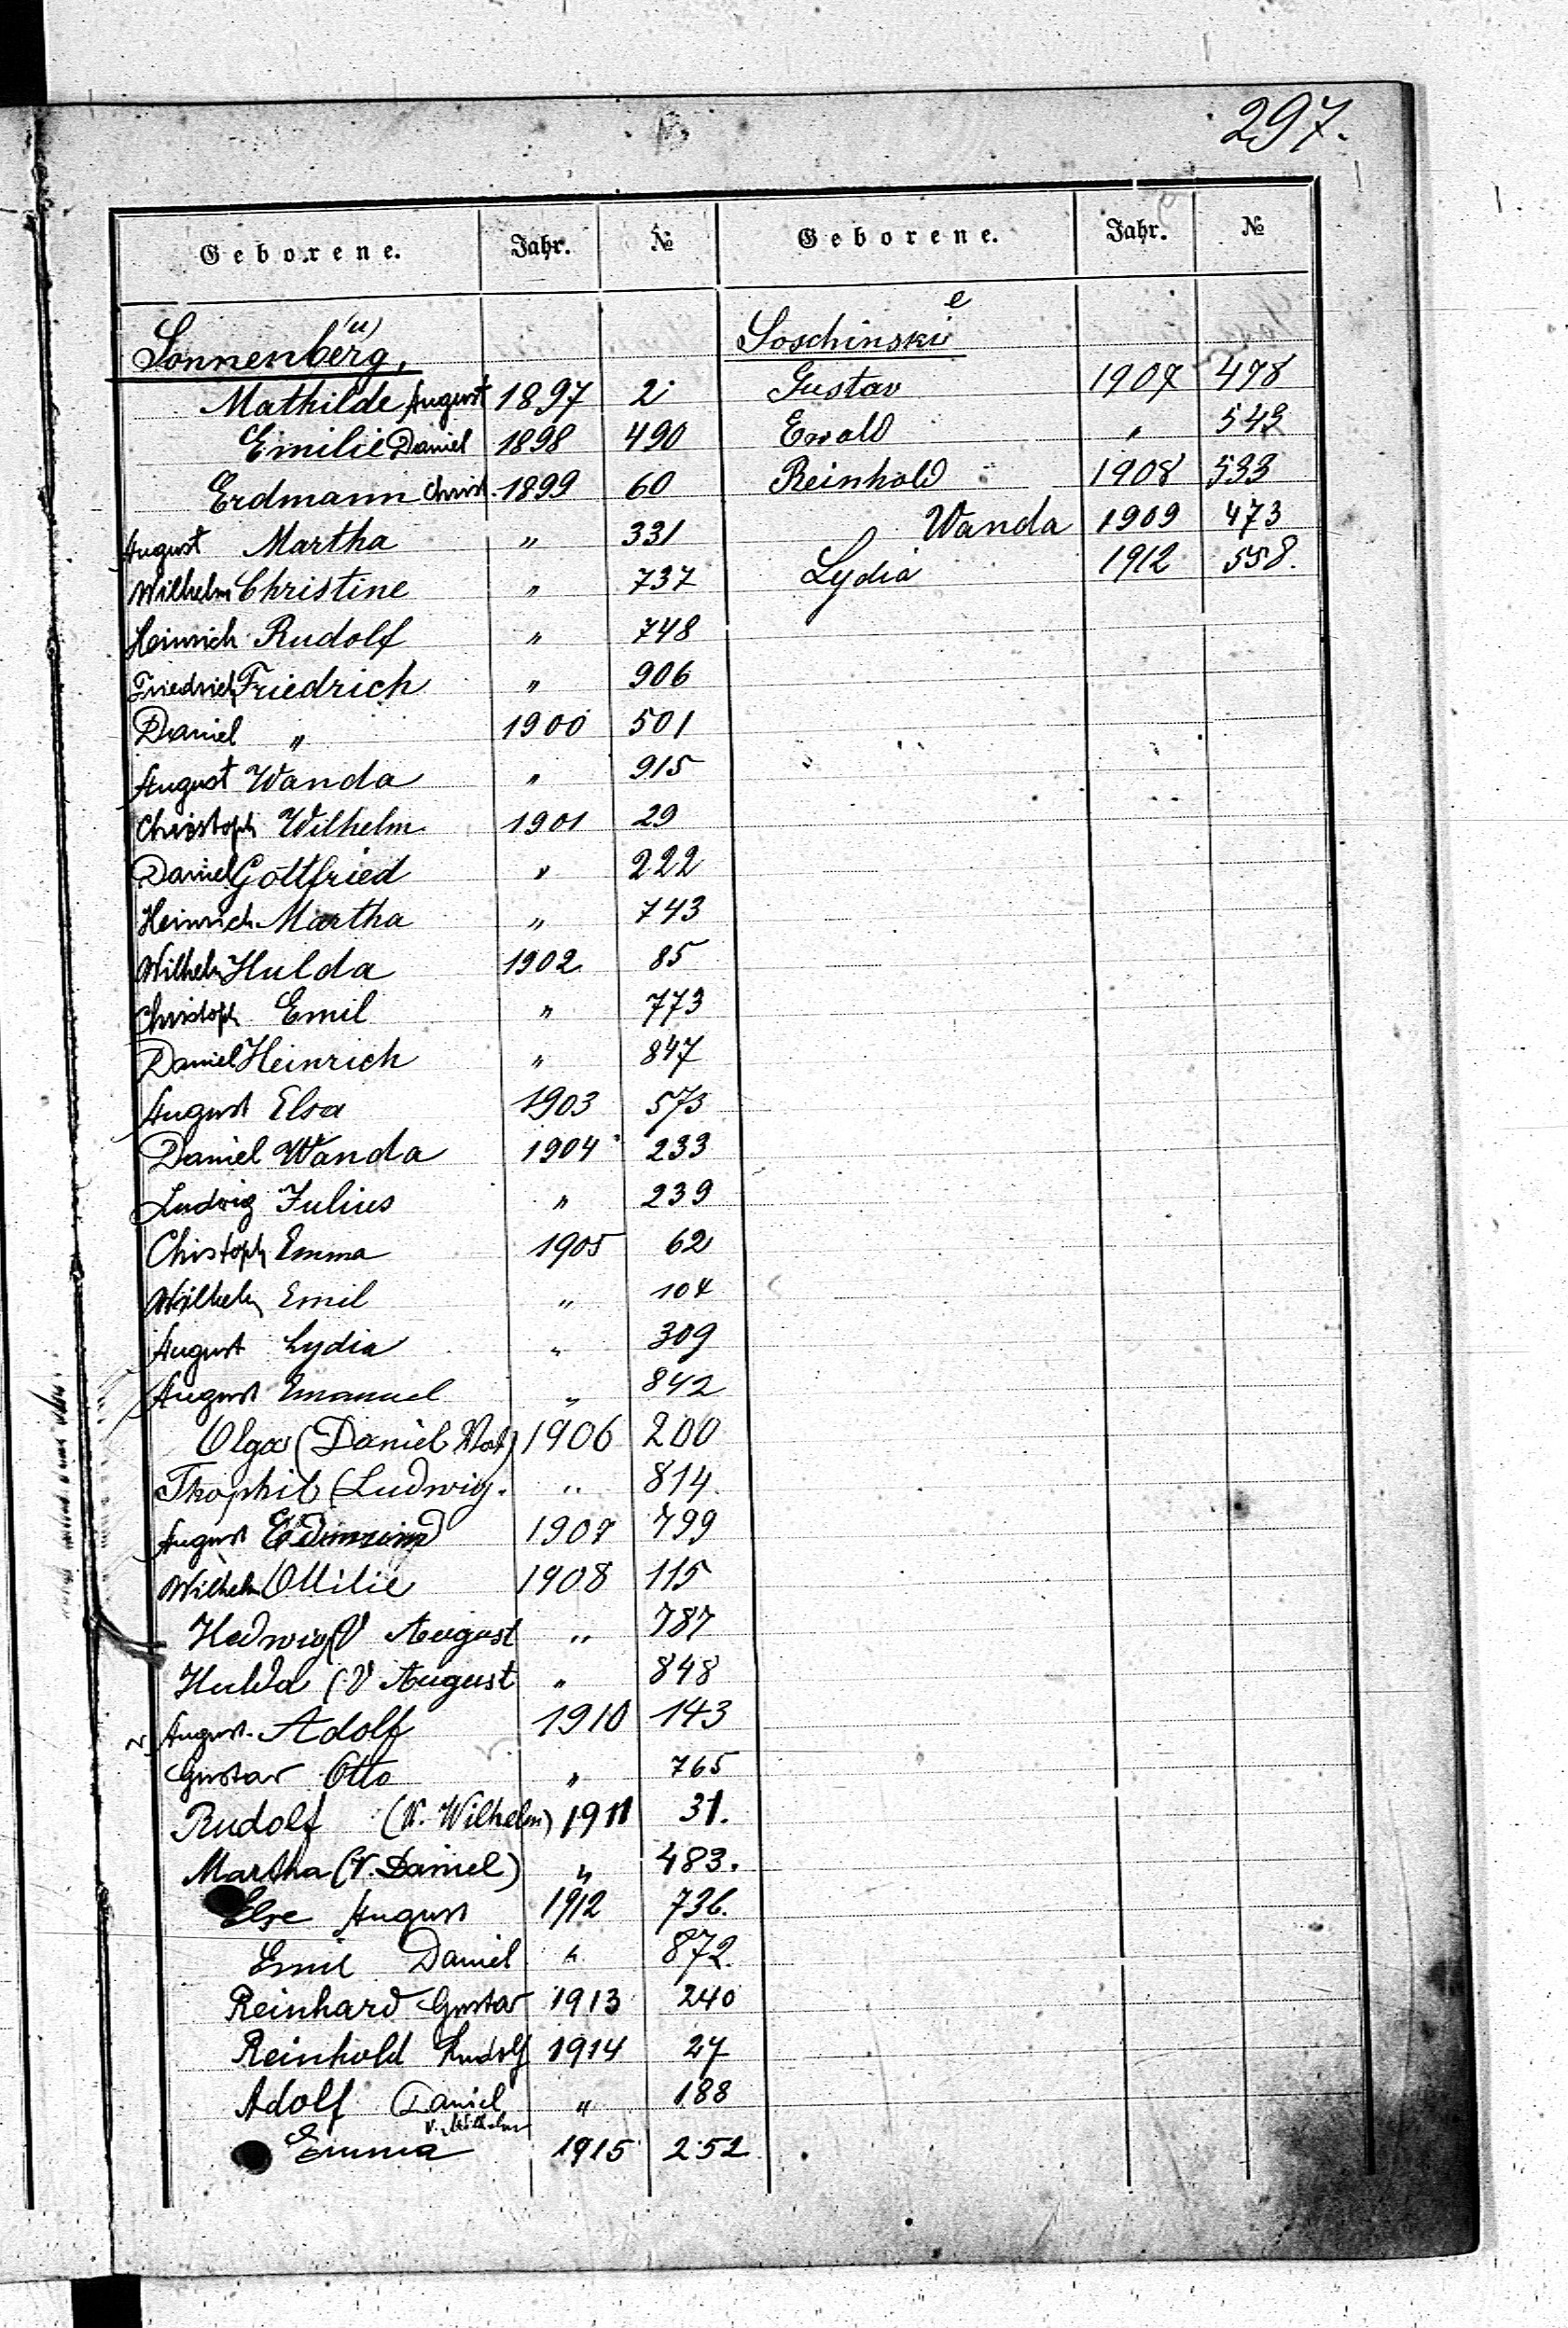 297.
Geborene. Jahr. №
Sonnenberg, (u)
Mathilde August 1897 2
Emilie Daniel 1898 490
Erdmann Christ. 1899 60
August Martha " 331
Wilhelm Christine " 737
Heinrich Rudolf " 748
Friedrich Friedrich " 906
Daniel " 1900 501
August Wanda " 915
Christoph Wilhelm 1901 29
Daniel Gottfried " 222
Heinrich Martha " 743
Wilhelm Hulda 1902 85
Christoph Emil " 773
Daniel Heinrich " 847
August Elsa 1903 573
Daniel Wanda 1904 233
Ludwig Julius " 239
Chistoph Emma 1905 62
Wilhelm Emil " 104
August Lydia " 309
August Emanuel " 842
Olga (Daniel Vat) 1906 200
Theophil (Ludwig. " 814.
August 1907 799
Wilhelm Ottilie 1908 115
Hedwig (V August " 787
Hulda (V August " 848
August. Adolf 1910 143
Gustav Otto " 765
Rudolf (V. Wilhelm) 1911 31.
Martha (V. Daniel) " 483.
Else August 1912 736.
Emil Daniel " 872.
Reinhard Gustav 1913 240
Reinhold Rudolf 1914 27
Adolf Daniel " 188
v. Wilhelm
Emma 1915 252
Geborene. Jahr. №
e
Soschinski
Gustav 1907 478
Ewald " 543
Reinhold 1908 533
Wanda 1909 473
Lydia 1912 558.